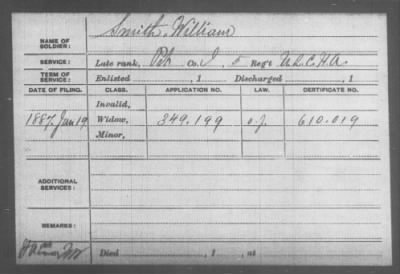 NAME OF SOLDIER: Smith, William
SERVICE: Late rank, Pvt Co. I, 5 Reg't U.S.C.H.A.
TERM OF SERVICE: Enlisted , 1 Discharged , 1
DATE OF FILING. CLASS. APPLICATION NO. LAW. CERTIFICATE NO.
Invalid,
1887 Jan 19 Widow, 349.199 o.j. 610.019
Minor,
ADDITIONAL SERVICES:
REMARKS:
Died , 1 , at